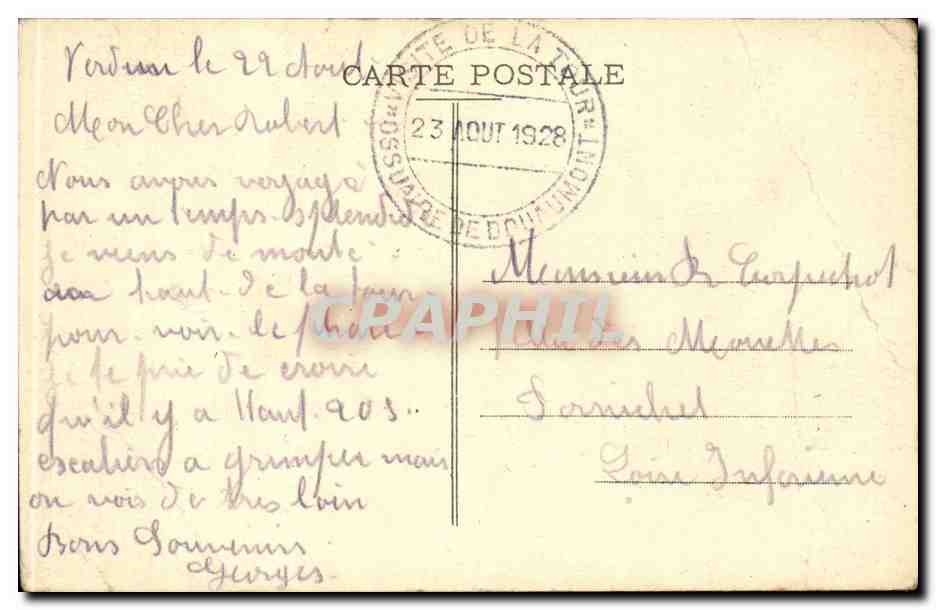 CARTE POSTALE
"VISITE DE LA TOUR"
OSSUAIRE DE DOUAUMONT
23 AOUT 1928
Verdun le 22 Aout
Mon Cher Robert
Nous avons voyagé
par un temps splendide
je viens de monté
au haut de la tour
pour voir le phare
je te prie de croire
qu'il y a haut 205
escaliers a grimper mais
on vois de tres loin
Bons Souvenirs
Georges
Monsieur R Torpechot
des Mouettes
Pornichet
Loire Inferieure
CPAPHIL